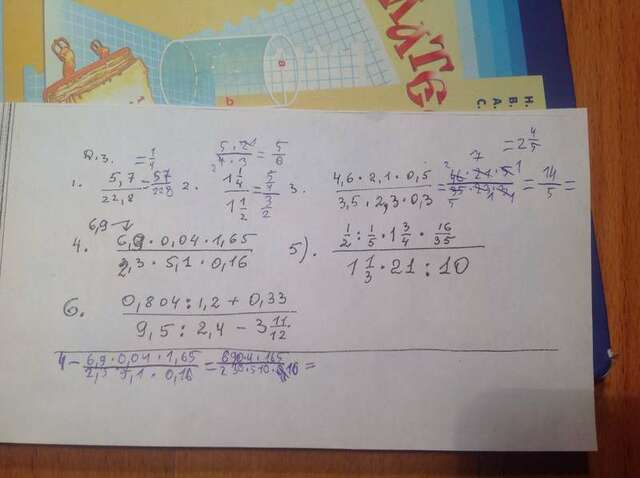 Д.З. = 1/4
1. 5,7/22,8 = 57/228
2. 1 1/4 / 1 1/2 = 5/4 / 3/2
= 5/6
3. 4,6 · 2,1 · 0,5 / 3,5 · 2,3 · 0,3 = = 14/5 =
= 2 4/5
6,9
4. 6,9 · 0,04 · 1,65 / 2,3 · 5,1 · 0,16
5). 1/2 : 1/5 · 1 3/4 · 16/35 / 1 1/3 · 21 : 10
6. 0,804 : 1,2 + 0,33 / 9,5 : 2,4 - 3 11/12
4 - 6,9 · 0,04 · 1,65 / 2,3 5,1 · 0,16 = 690 · 4 · 165 / 230 · 510 · 16 =